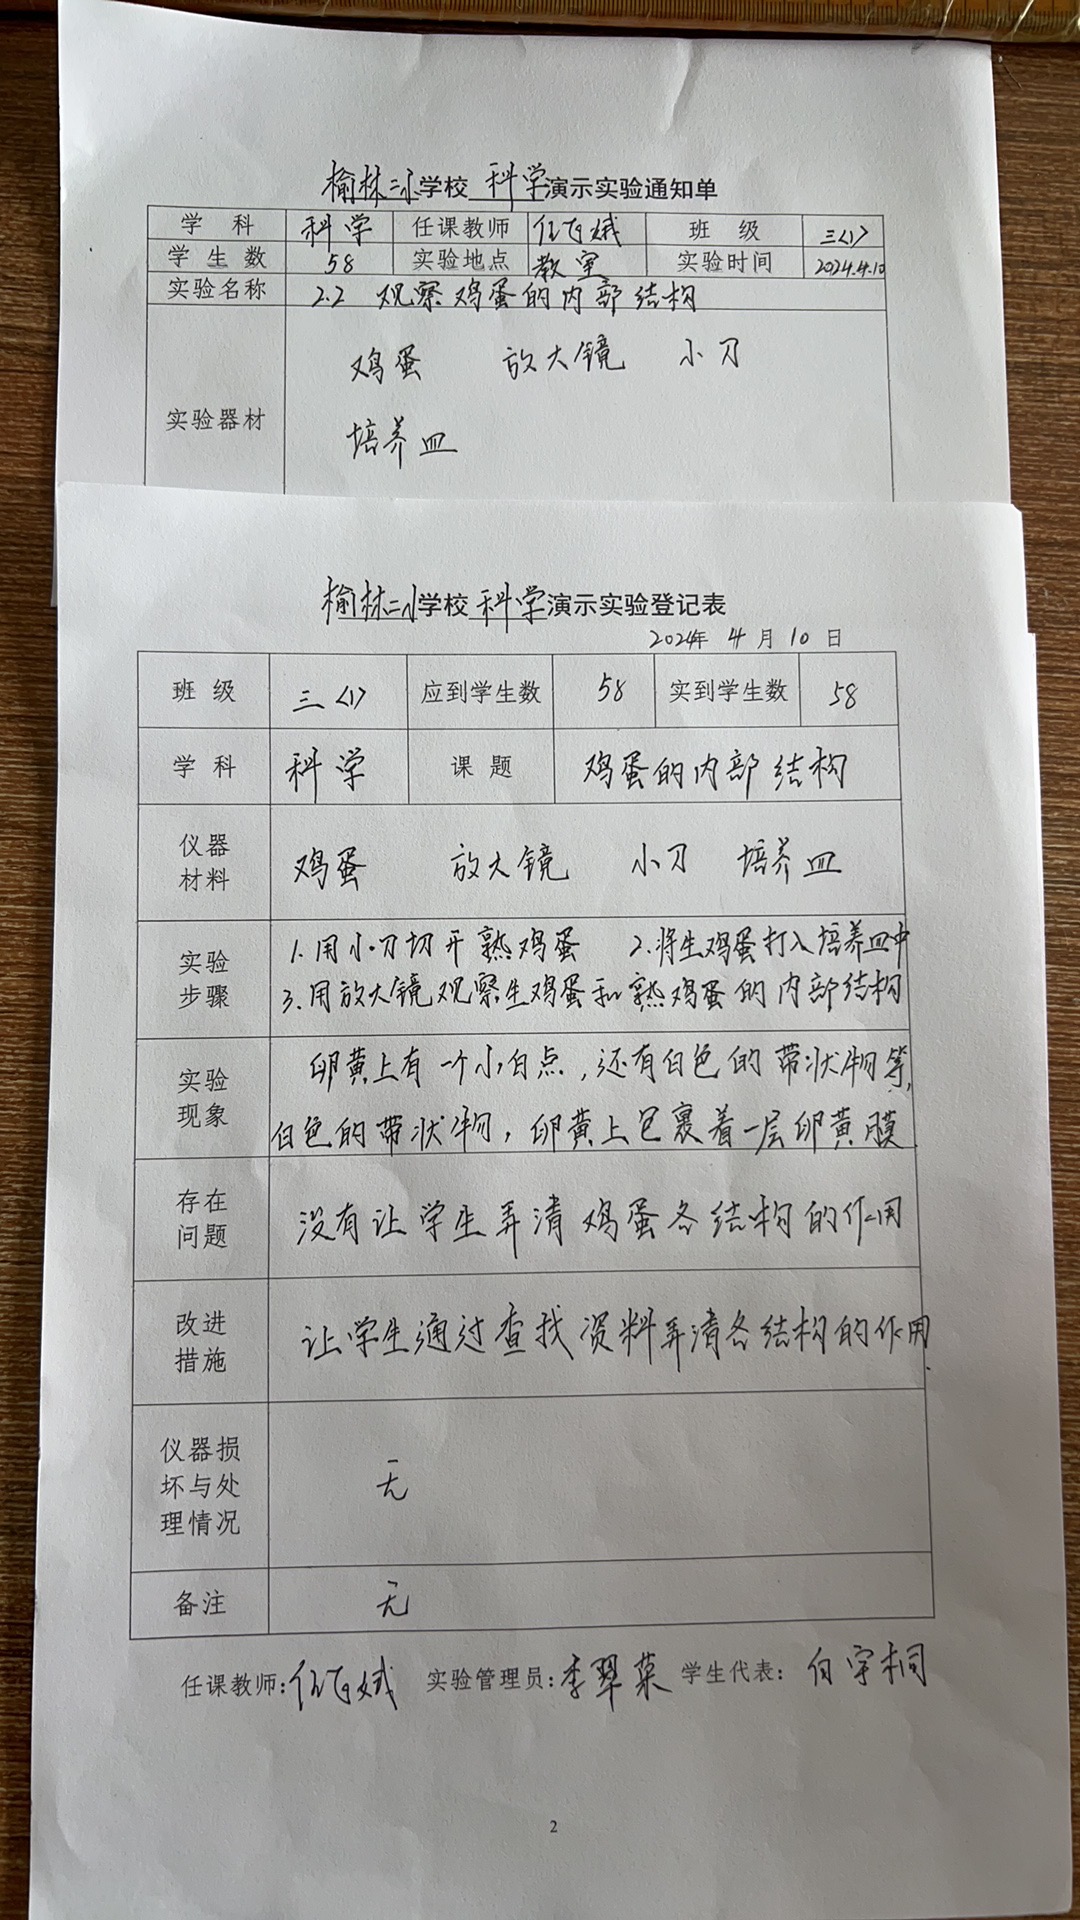 榆林二小学校 科学演示实验通知单
学 科 科学 任课教师 任飞娥 班 级 三<1>
学生数 58 实验地点 教室 实验时间 2024.4.10
实验名称 2.2 观察鸡蛋的内部结构
鸡蛋 放大镜 小刀
实验器材
培养皿
榆林二小学校 科学演示实验登记表
2024年 4 月 10 日
班 级 三<1> 应到学生数 58 实到学生数 58
学 科 科学 课 题 鸡蛋的内部结构
仪器
材料
鸡蛋 放大镜 小刀 培养皿
实验
步骤
1.用小刀切开熟鸡蛋 2.将生鸡蛋打入培养皿中
3.用放大镜观察生鸡蛋和熟鸡蛋的内部结构
实验
现象
卵黄上有一个小白点,还有白色的带状物等,
白色的带状物,卵黄上包裹着一层卵黄膜
存在
问题
没有让学生弄清鸡蛋各结构的作用
改进
措施
让学生通过查找资料弄清各结构的作用.
仪器损
坏与处
理情况
无
备注 无
任课教师:任飞娥 实验管理员:李翠菜 学生代表:白宇桐
2